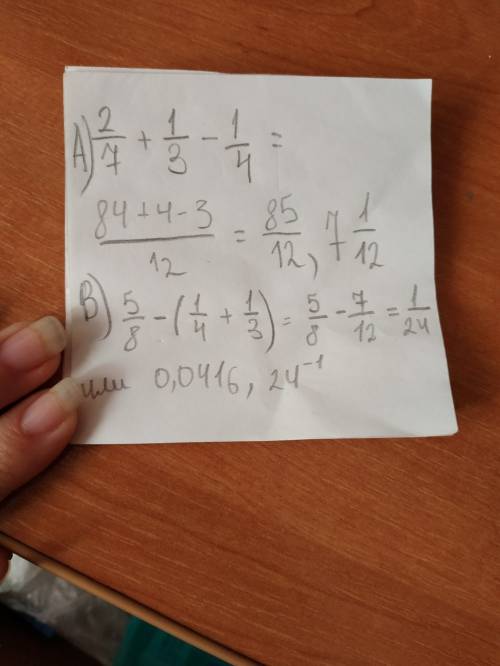 A) 2/7 + 1/3 - 1/4 =
84+4-3/12 = 85/12, 7 1/12
B) 5/8 - (1/4 + 1/3) = 5/8 - 7/12 = 1/24
или 0,0416, 24⁻¹